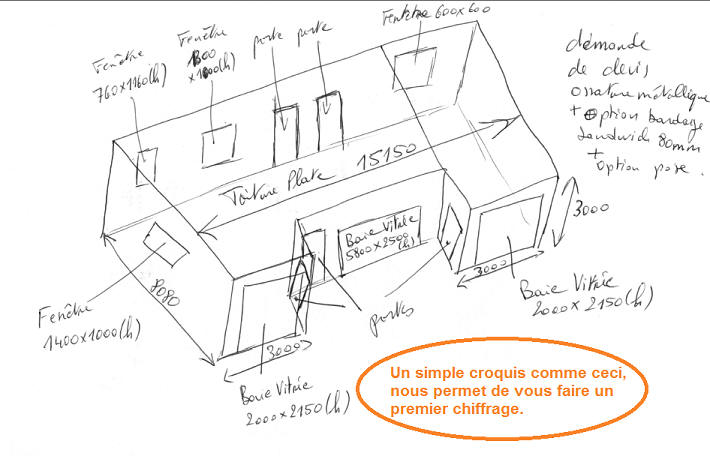 Fenêtre
760x1160(h)
Fenêtre
x1000(h)
porte
porte
Fenêtre 600x600
démande
de devis
ossature métallique
+ option bardage
sandwich 80mm
+
option pose.
Toiture Plate
15150
Baie Vitrée
5800x2500(h)
3000
3000
Baie Vitrée
2000x2150(h)
8080
Fenêtre
1400x1000(h)
portes
3000
Baie Vitrée
2000x2150(h)
Un simple croquis comme ceci,
nous permet de vous faire un
premier chiffrage.